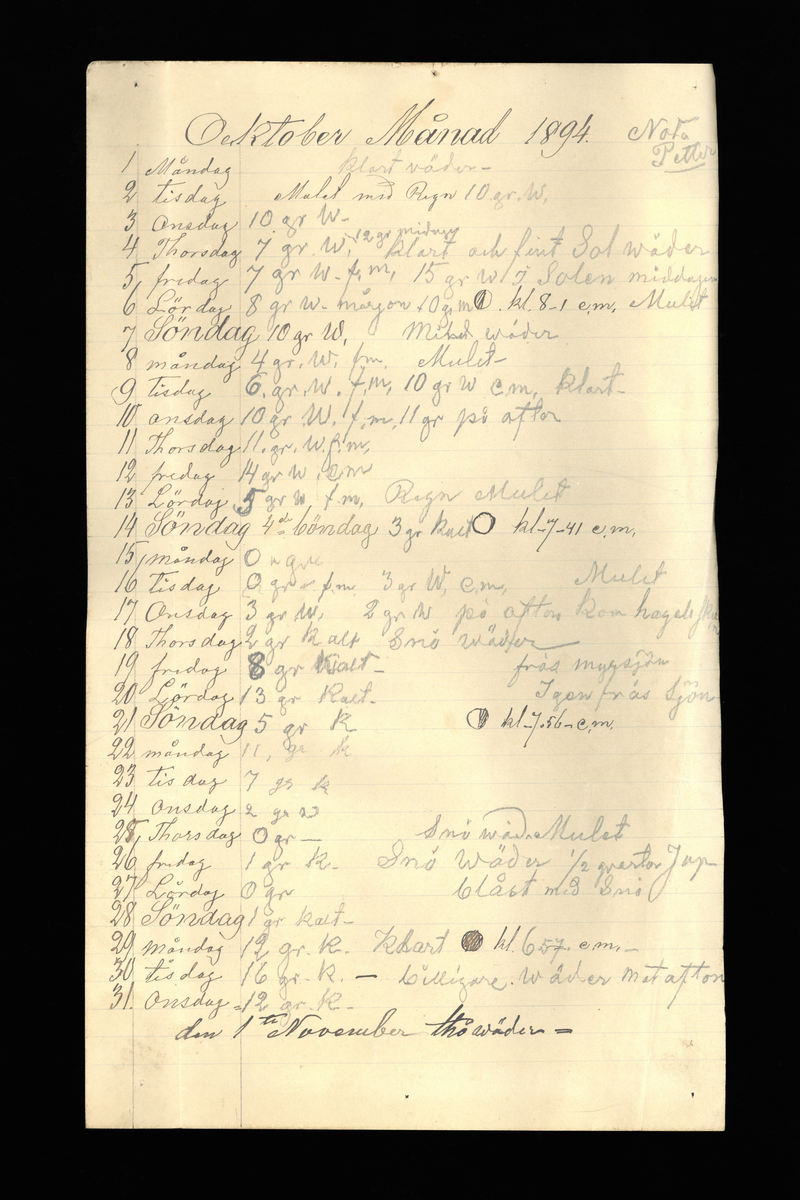 Ocktober Månad 1894. Nota
Petter
1 Måndag klart wäder -
2 tisdag Mulet med Regn 10 gr. W,
3 Onsdag 10 gr W -
4 Thorsdag 7 gr. W, 12 gr midda klart och fint Sol wäder
5, fredag 7 gr W - f, m, 15 gr W I Solen middagen
6 Lördag 8 gr W - mårgon 10 gr m . kl. 8-1 e,m, Mulet
7 Söndag 10 gr W, wäder
8 måndag 4 gr. W, f m. Mulet -
9 tisdag 6. gr. W. f, m, 10 gr W e m, klart -
10 onsdag 10 gr. W. f, m, 11 gr på afton
11 Thorsdag 11. gr. W f, m,
12 fredag 14 gr W . e m
13 Lördag 5 gr W f. m, Regn Mulet
14 Söndag 4de böndag 3 gr kalt kl - 7 - 41 e, m,
15, måndag 0 gr
16 tisdag 0 gr - f. m 3 gr W, e, m, Mulet
17 Onsdag 3 gr W, 2 gr W på afton kom hagel
18 Thorsdag 2 gr kalt Snö wäder
19 fredag 8 gr kalt - frös myrsjön
20 Lördag 13 gr Kalt - Igen frös Sjön
21 Söndag 5 gr K kl - 7. 56 - e, m,
22 måndag 11, gr k
23 tisdag 7 gr k
24 Onsdag 2 gr
25, Thorsdag 0 gr — Snö wäd. Mulet
26 fredag 1 gr K - Snö Wäder 1/2
27 Lördag 0 gr blåst med Snö
28 Söndag 1 gr kalt -
29 måndag 12 gr. K. Klart kl. 6 57. e. m, -
30 tisdag 16 gr. K. — billigare. wäder mot afton
31. Onsdag = 12 gr. K -
den 1 ta November thöwäder =